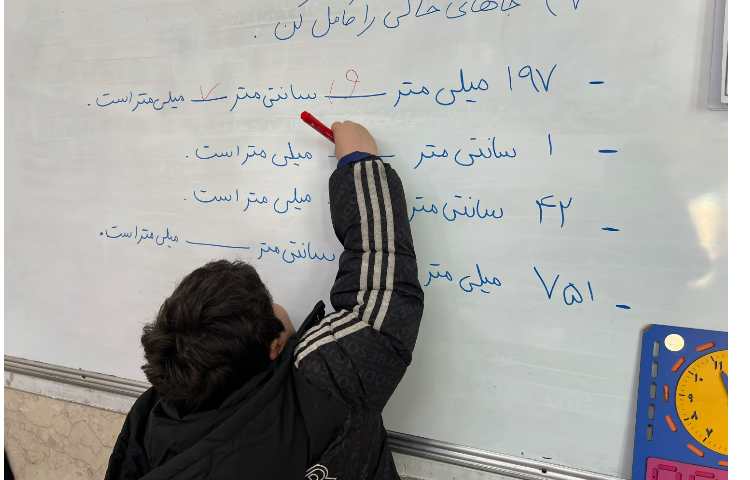 جاهای خالی را کامل کن .
- ۱۹۷ میلی متر ۱۹ سانتی متر ۷ میلی متر است .
- ۱ سانتی متر میلی متر است .
- ۴۲ سانتی متر میلی متر است .
- ۷۵۱ میلی متر سانتی متر ــــ میلی متر است .
۱۱
۱۰
۹
۸
۷